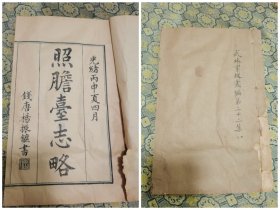 光緒丙申夏四月
照膽臺志略
錢唐楊振鎬書
武林掌故叢編第二十二集